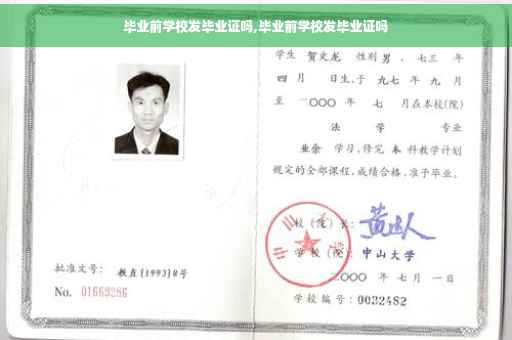 毕业前学校发毕业证吗,毕业前学校发毕业证吗
学生 贺文龙 性别 男 、七三 年
四 月 日生,于 九七 年 九 月
至 二〇〇〇 年 七 月在本校(院)
法 学 专业
业余 学习,修完 本 科教学计划
规定的全部课程,成绩合格,准予毕业。
校(院)长:
学校(院): 中山大学
二〇〇〇 年 七 月 一 日
学校编号: 0032482
批准文号: 教直[1993]8号
No. 01669286